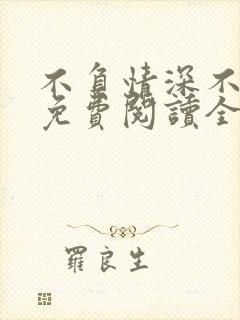 不負情深不
免費閱讀全
羅良生